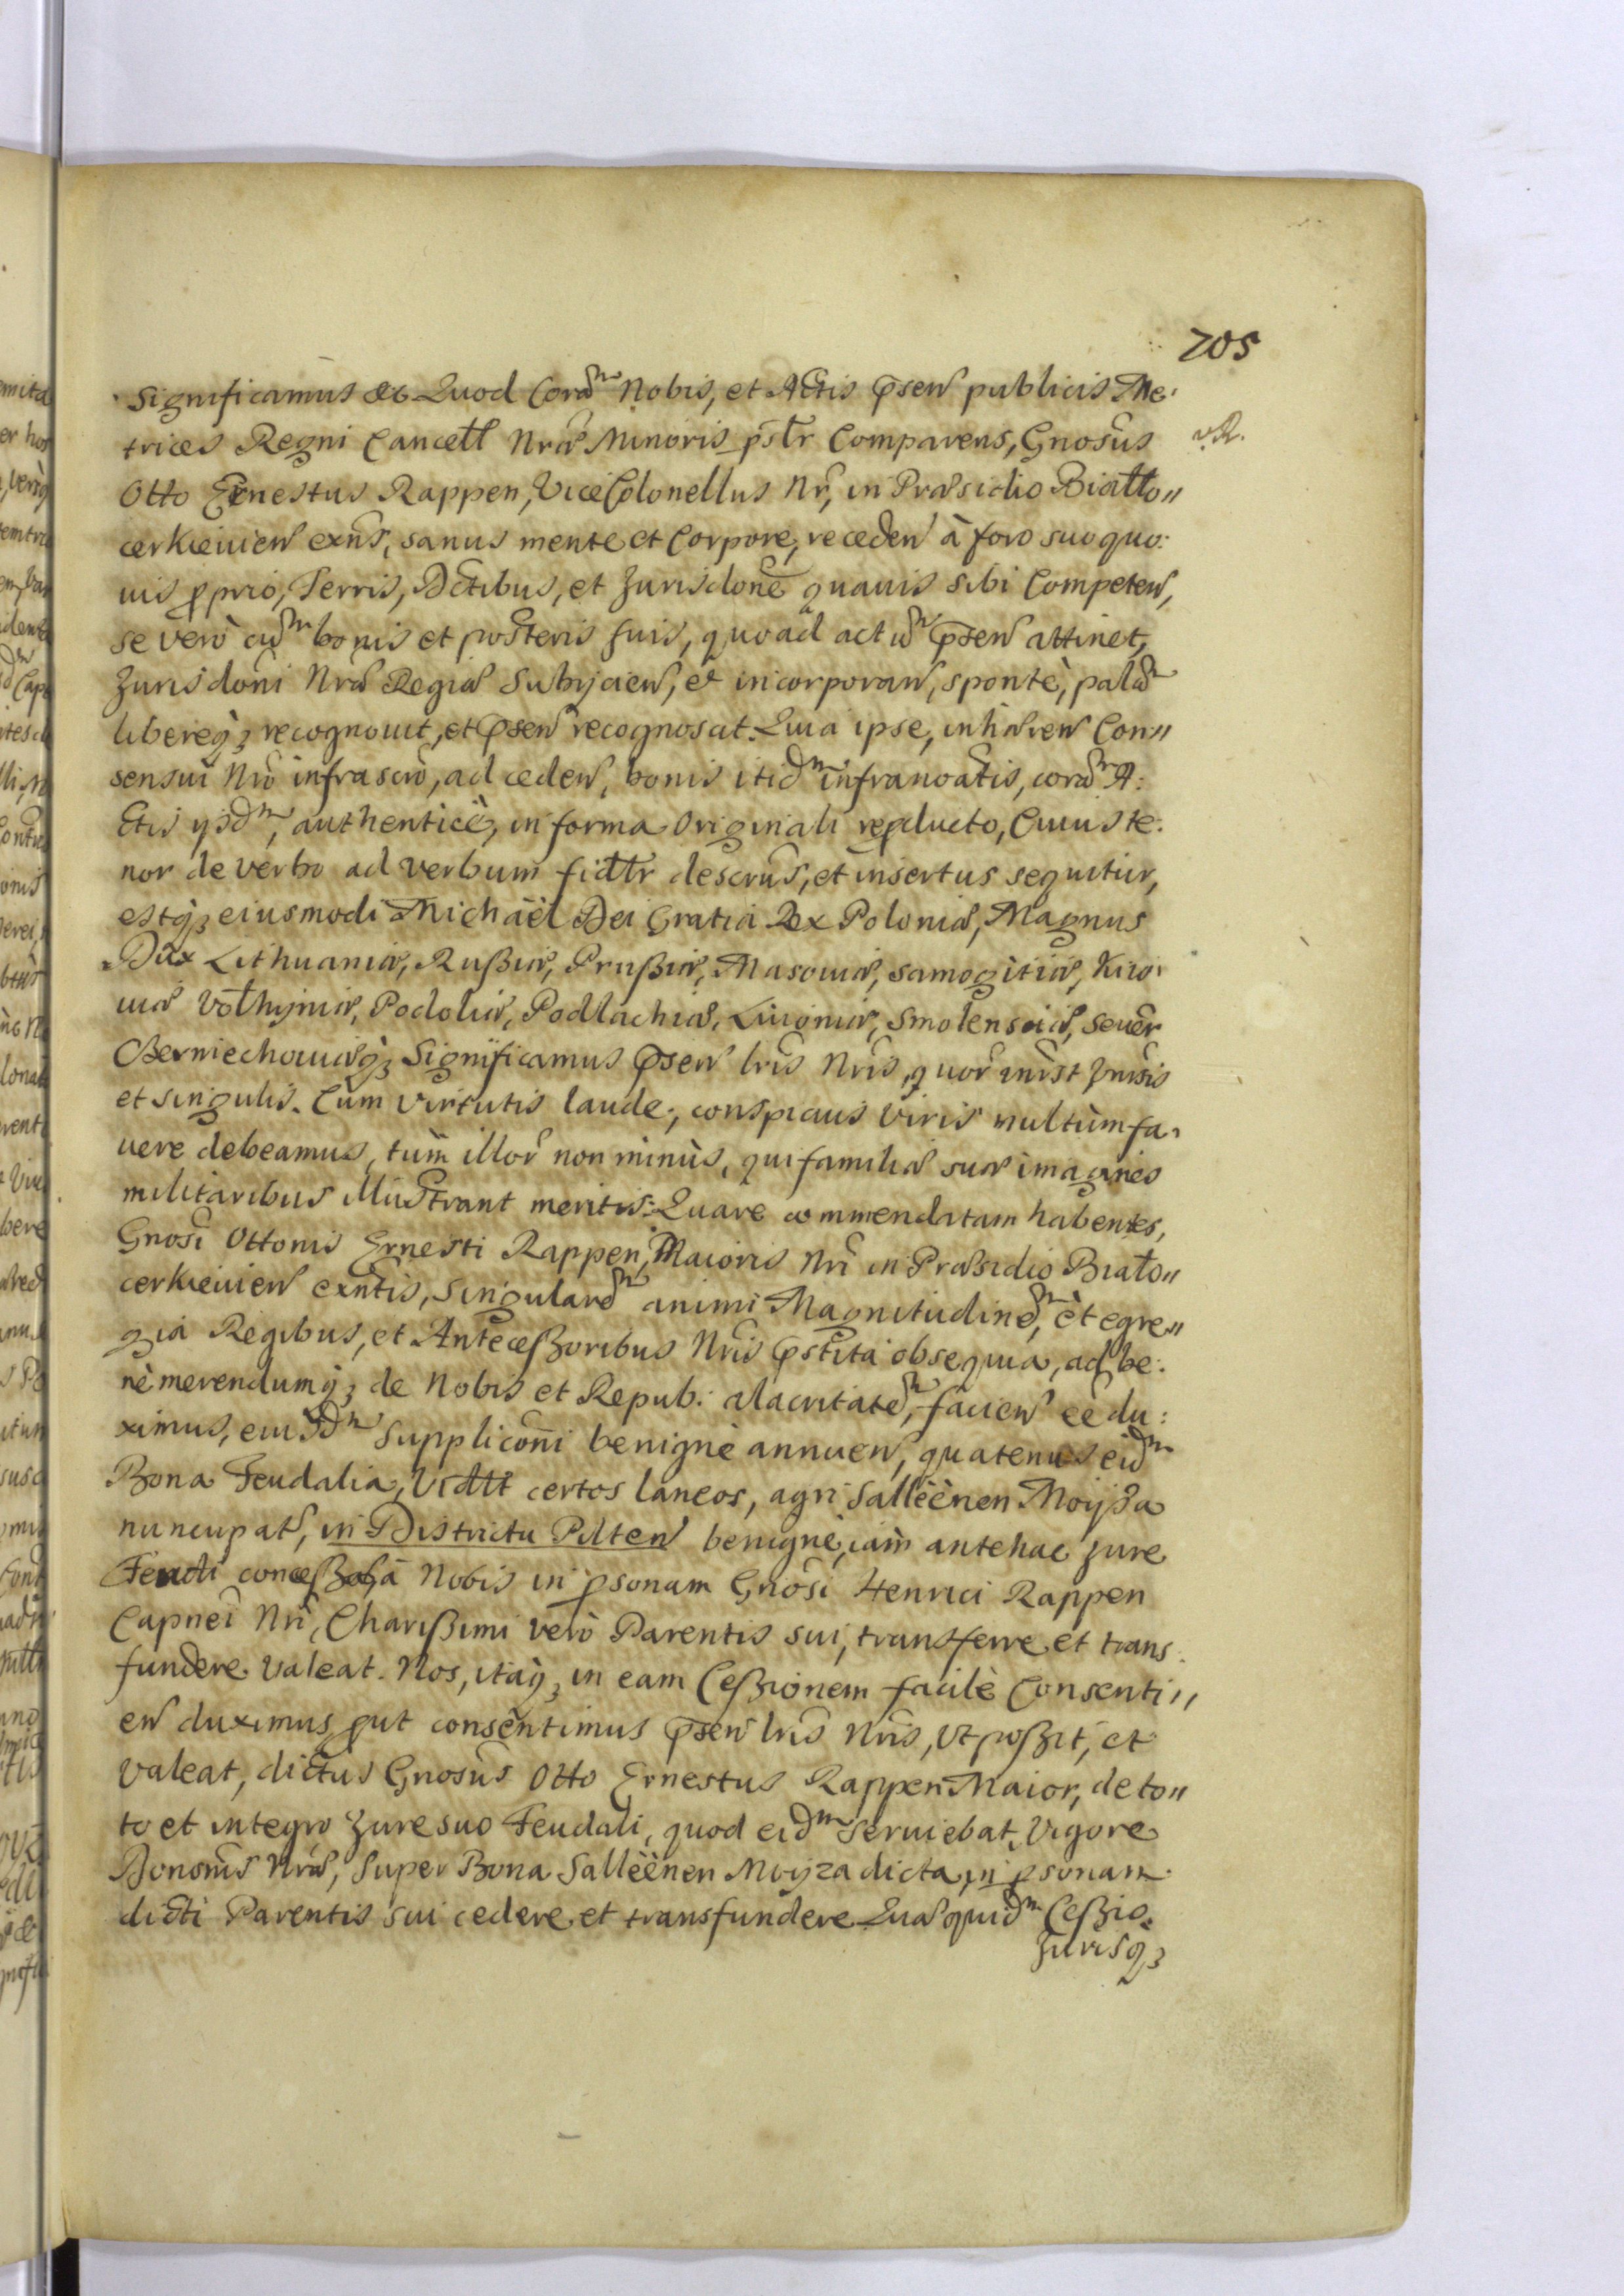 705
Significamus etc Quod Corã Nobis, et Actis p̃sen publicis Me:
trices Regni Cancell Nrae Minoris p̃slr Comparens, Gnosus
vR.
Otto Ernestus Rappen, ViceColonellus Nr, in Praesidio Biatto"
cerkieuien exñs, sanus mente et Corpore, receden à foro suo quo:
uis pprio, Terris, Dctibus, et Jurisdone quauis sibi Competen,
se verò cũ bonis et posteris suis, quoad actũ p̃sen attinet,
Jurisdoni Nrae Regiae Subijcien, et incorporan, spontè, palã
libereq3 recognouit, et p̃sen recognoscit. Quia ipse, inhaeren Con"
sensui Nro infrascro, ad ceden, bonis itidm infranoatis, corã A:
Ctis ijsdm, authenticè, in forma Originali repducto, Cuius te:
nor de verbo ad verbum fidlr descrus, et insertus sequitur,
estq3 eiusmodi Michaël Dei Gratia Rex Poloniae, Magnus
Dux Lithuaniae, Rußiae, Prußiae, Masouiae, Samogitiae, Kijo:
uiae Volhyniae, Podoliae, Podlachiae, Liuoniae, Smolensciae, Seuer
Czerniechouiaeq3 Significamus p̃sen lris Nris, quor inrst Vnisis
et singulis. Cum virtutis laude, conspicuis viris multùm fa:
uere debeamus, tùm illor non minùs, qui familiae suae imagines
militaribus illustrant meritis: Quare commendatam habentes,
Gnosi Ottonis Ernesti Rappen, Maioris Nri in Praesidio Biato"
cerkieuien exñtis, Singularẽ animi Magnitudinẽ, et egre"
gia Regibus, et Anteceßoribus Nris p̃stita obsequia, ad be:
nè merendumq3 de Nobis et Repub: alacritatẽ, facien eẽ du:
ximus, eiusdm Suppliconi benignè annuen, quatenus eidm
Bona Feudalia, Vidtt certos laneos, agri Salleènen Moyza
nuncupat, in Districtu Pilten benignè, iàm antehac Jure
Feudi conceßa à Nobis in psonam Gnosi Henrici Rappen
Capnei Nri, Charißimi verò Parentis sui, transferre et trans:
fundere valeat. Nos, itaq3 in eam Ceßionem facilè Consenti"
en duximus, put consentimus p̃sen lris Nris, Vt poßit, et
valeat, dictus Gnosus Otto Ernestus Rappen Maior, de to"
to et integro Jure suo Feudali, quod eidm seruiebat, Vigore
Donsnis Nrae, super Bona Salleènen Moyza dicta, in psonam
dicti Parentis sui cedere et transfundere Quae quidm Ceßio
Jurisq3